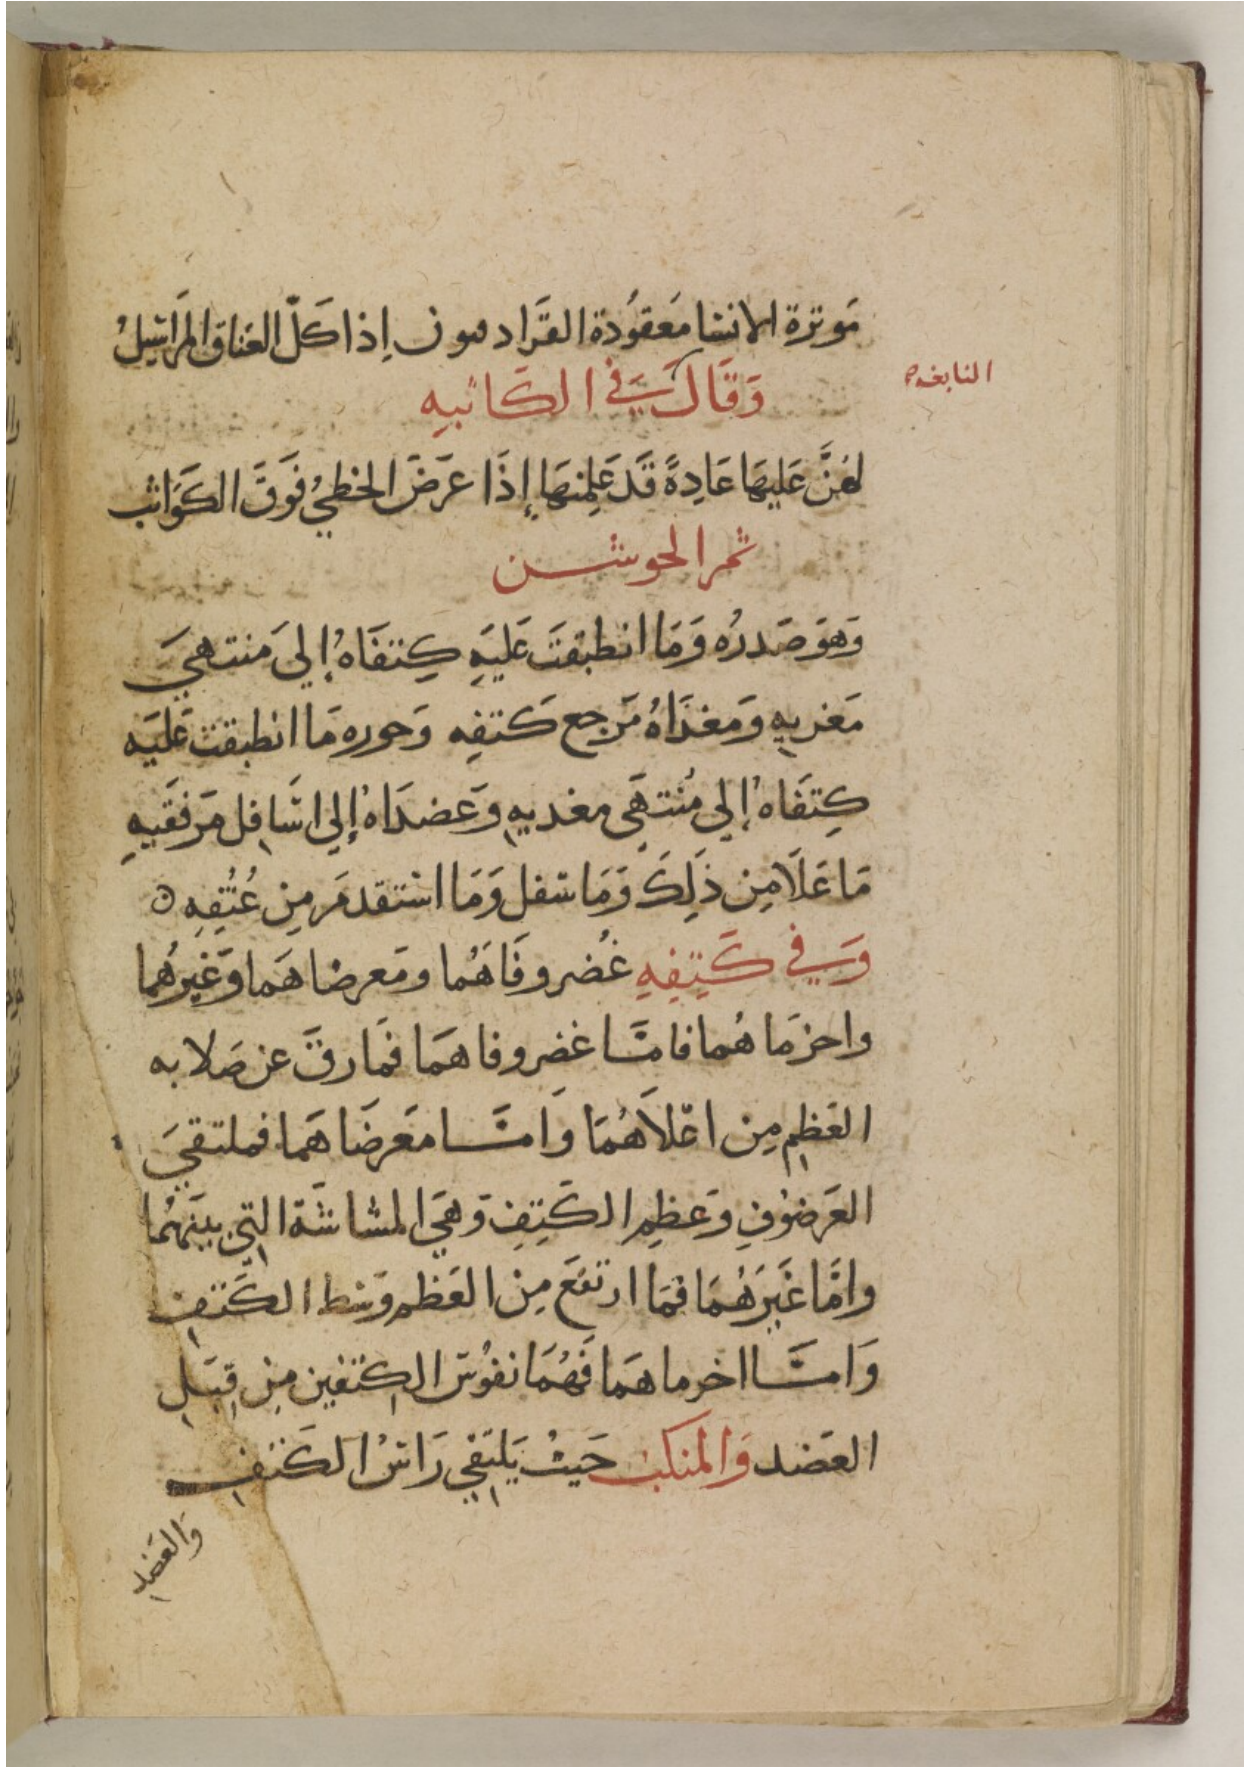 موترة الانسا معقودة القرا دمون إذا كلّ العناق المراسيلُ
النابغه
وَقَالَ في الكَاثبيه
لهنَّ عَليهَا عَادِةً قَد عَلِمنهَا إِذَا عَرَضَ الخطيُ فَوقَ الكَوَاثب
ثمر الجوشن
وَهوَ صَدرُه وَمَا انطبقَت عَليَهِ كِتفَاهُ إلي مَنتهيَ
مَغربِهِ وَمغذَاهُ مَرجع كَتفِه وَحوره مَا انطبقت عَليَه
كِتِفَاهُ إلي مُنتهَي مغديهِ وَعَضدَاهُ إلي اسَافِل مَرفَقَيهِ
مَا عَلَا مِن ذَلِكَ وَمَا سفل وَمَا استقدمَ مِن عُنُقِهِ ه
وَفي كَتِفِهِ غُضروفَاهُمُا ومَعرضاهَما وَغَيرهُما
واخرَما هُما فامَّا غضروفاهمَا فمَا رقَّ عن صَلابه
العَظِم مِن اعَلاَهُمَا وَامَّا مَعَرضَاهَما فملتقيَ
الغَرضوُفِ وَعَظمِ الكَتِفِ وَهيَ المشاشَة التي بينَهُما
وامَّا غَيَرَهُمَا فمَا ارتفعَ مِنَ العَظم وَسَط الكَتَفِ
وَامَّا اخرماهمَا فَهُمَا نفوُسَ الكتفين مِن قِبَلِ
العَضد وَالمنكب حَيثُ يَلِتَقي رَاسُ الكَتفِ
وَالعَضد